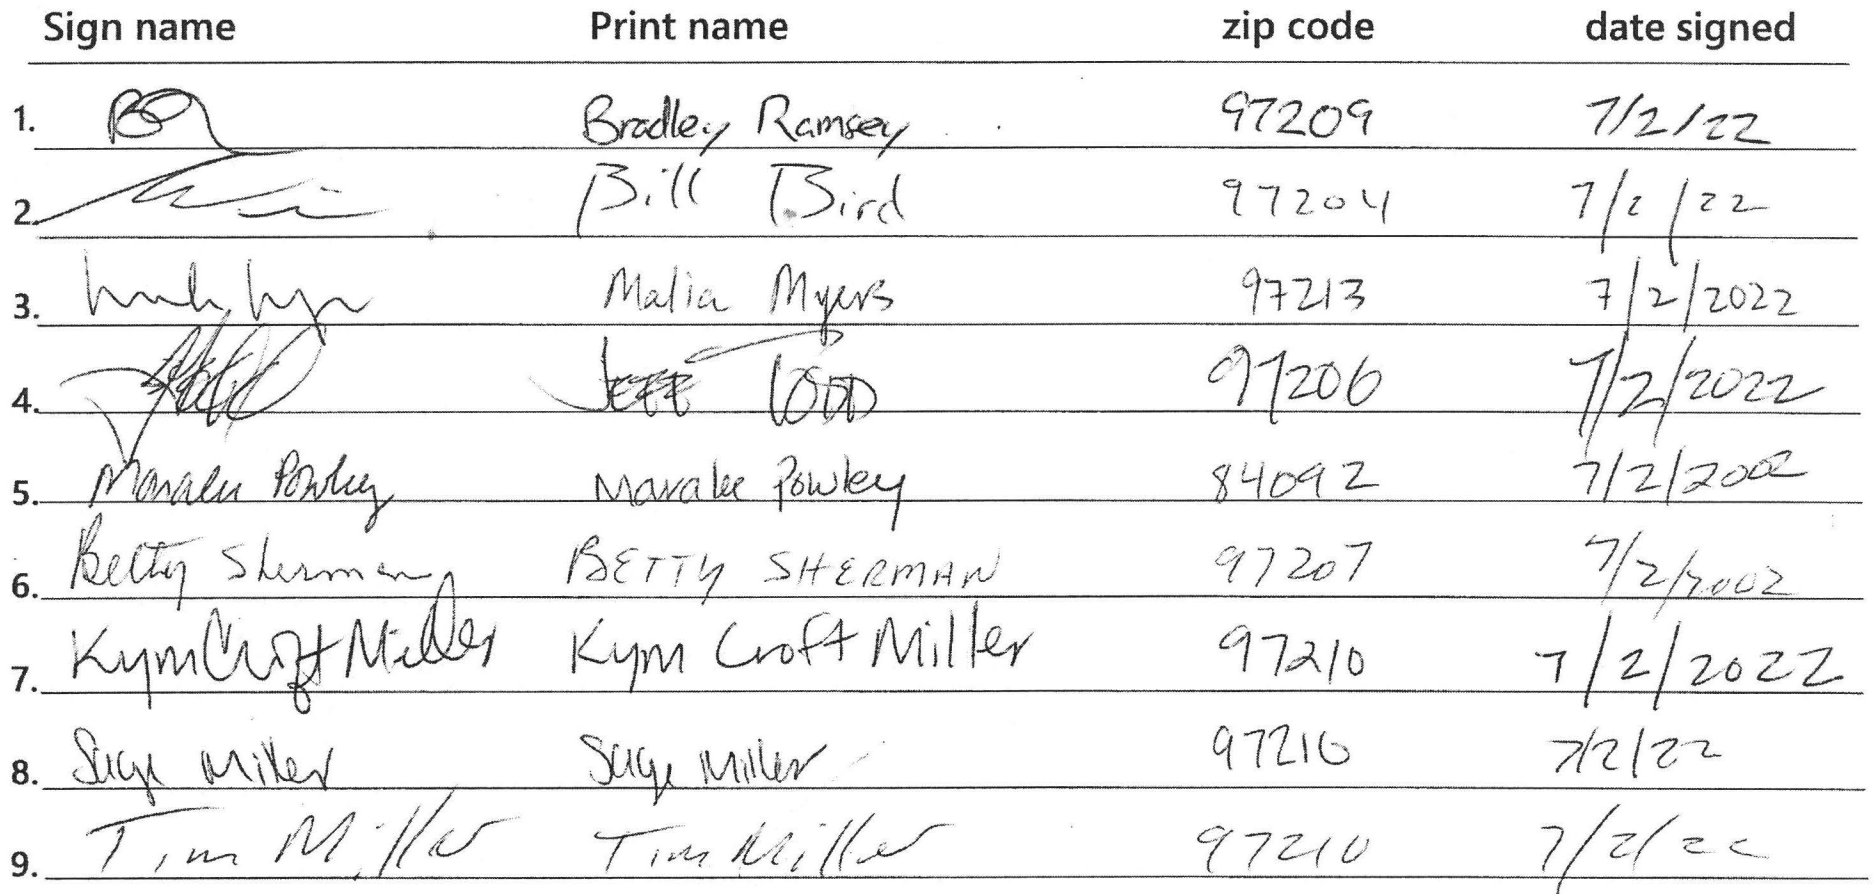 Sign name Print name zip code date signed
1. Bradley Ramsey 97209 7/2/22
2. Bill Bird 97204 7/2/22
3. Malia Myers 97213 7/2/2022
4. Jeff 97206 7/2/2022
5. Maralee Powley Maralee Powley 84092 7/2/2002
6. Betty Sherman BETTY SHERMAN 97207 7/2/2002
7. Kym Croft Miller Kym Croft Miller 97210 7/2/2022
8. Sage Miller Sage Miller 97210 7/2/22
9. Tim Miller Tim Miller 97210 7/2/22